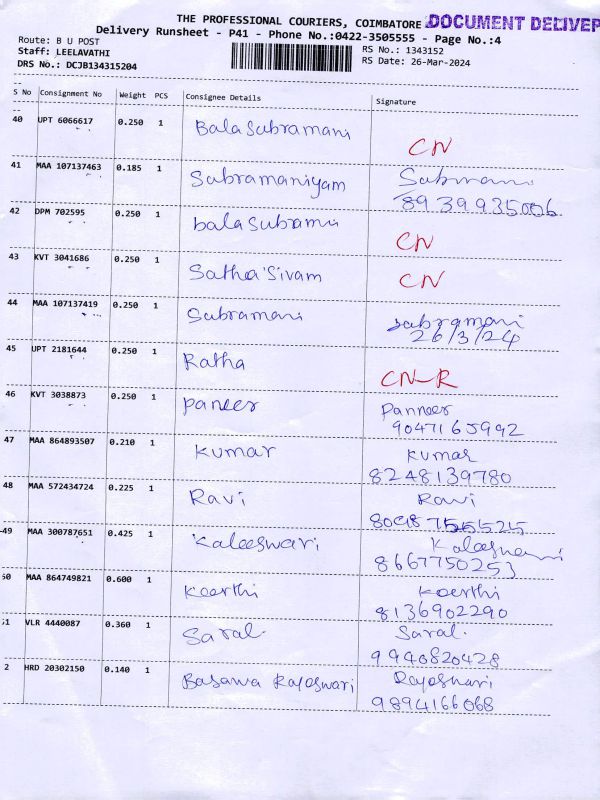 THE PROFESSIONAL COURIERS, COIMBATORE DOCUMENT DELIVER
Delivery Runsheet - P41 - Phone No.:0422-3505555 - Page No.:4
Route: B U POST
Staff: LEELAVATHI
DRS No.: DCJB134315204
RS No.: 1343152
RS Date: 26-Mar-2024
S No Consignment No Weight PCS Consignee Details Signature
40 UPT 6066617 0.250 1 Balasubramani CN
41 MAA 107137463 0.185 1 Subramaniyam Submani
8939935006
42 DPM 702595 0.250 1 balasubrama CN
43 KVT 3041686 0.250 1 Satha'sivam CN
44 MAA 107137419 0.250 1 Subramani Subramani
26/3/24
45 UPT 2181644 0.250 1 Ratha CN-R
46 KVT 3038873 0.250 1 paneer Panneer
9047165992
47 MAA 864893507 0.210 1 kumar kumar
8248139780
48 MAA 572434724 0.225 1 Ravi Ravi
49 MAA 300787651 0.425 1 Kaleeswari
8667750253
50 MAA 864749821 0.600 1 Keerthi Keerthi
8136902290
51 VLR 4440087 0.360 1 Saral. Saral.
9940820428
2 HRD 20302150 0.140 1 Basawa Rajeswari Rajeshwari
9894166068